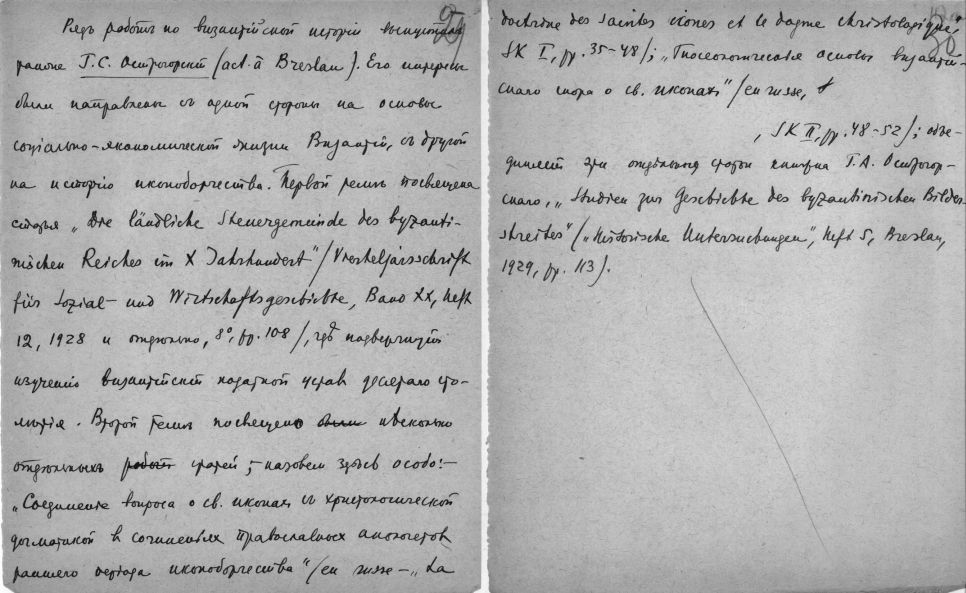 29
Рядъ работъ по византійской исторіи выпустилъ
ранѣе Г.С. Острогорскій (act. à Breslau). Его интересы
были направлены съ одной стороны на основы
соціально-экономической жизни Византіи, съ другой
на исторію иконоборчества. Первой темѣ посвящена
статья „Die ländliche Steuergemeinde des byzanti-
nischen Reiches im X Jahrhundert" /Vierteljarsschrift
für Sozial- und Wirtschaftsgeschichte, Band XX, Heft
12, 1928 и отдѣльно, 8°, pp. 108/, гдѣ подвергнутъ
изученію византійскій податной уставъ десятаго сто-
лѣтія. Второй темѣ посвящено были нѣсколько
отдѣльныхъ работъ статей; – назовемъ здѣсь особо: –
„Соединеніе вопроса о св. иконахъ съ христологической
догматикой въ сочиненіяхъ православныхъ апологетовъ
ранняго періода иконоборчества" /en russe – „La
30
doctrine des saintes icones et le dogme christologique",
SK I, pp. 35-48/; „Гносеологическія основы византій-
скаго спора о св. иконахъ" /en russe,
, SK II, pp. 48-52/; объе-
диняетъ эти отдѣльныя статьи книга Г.А. Острогор-
скаго, „Studien zur Geschichte des byzantinischen Bilder-
streites" („Historische Untersuchungen", Heft 5, Breslau,
1929, pp. 113).